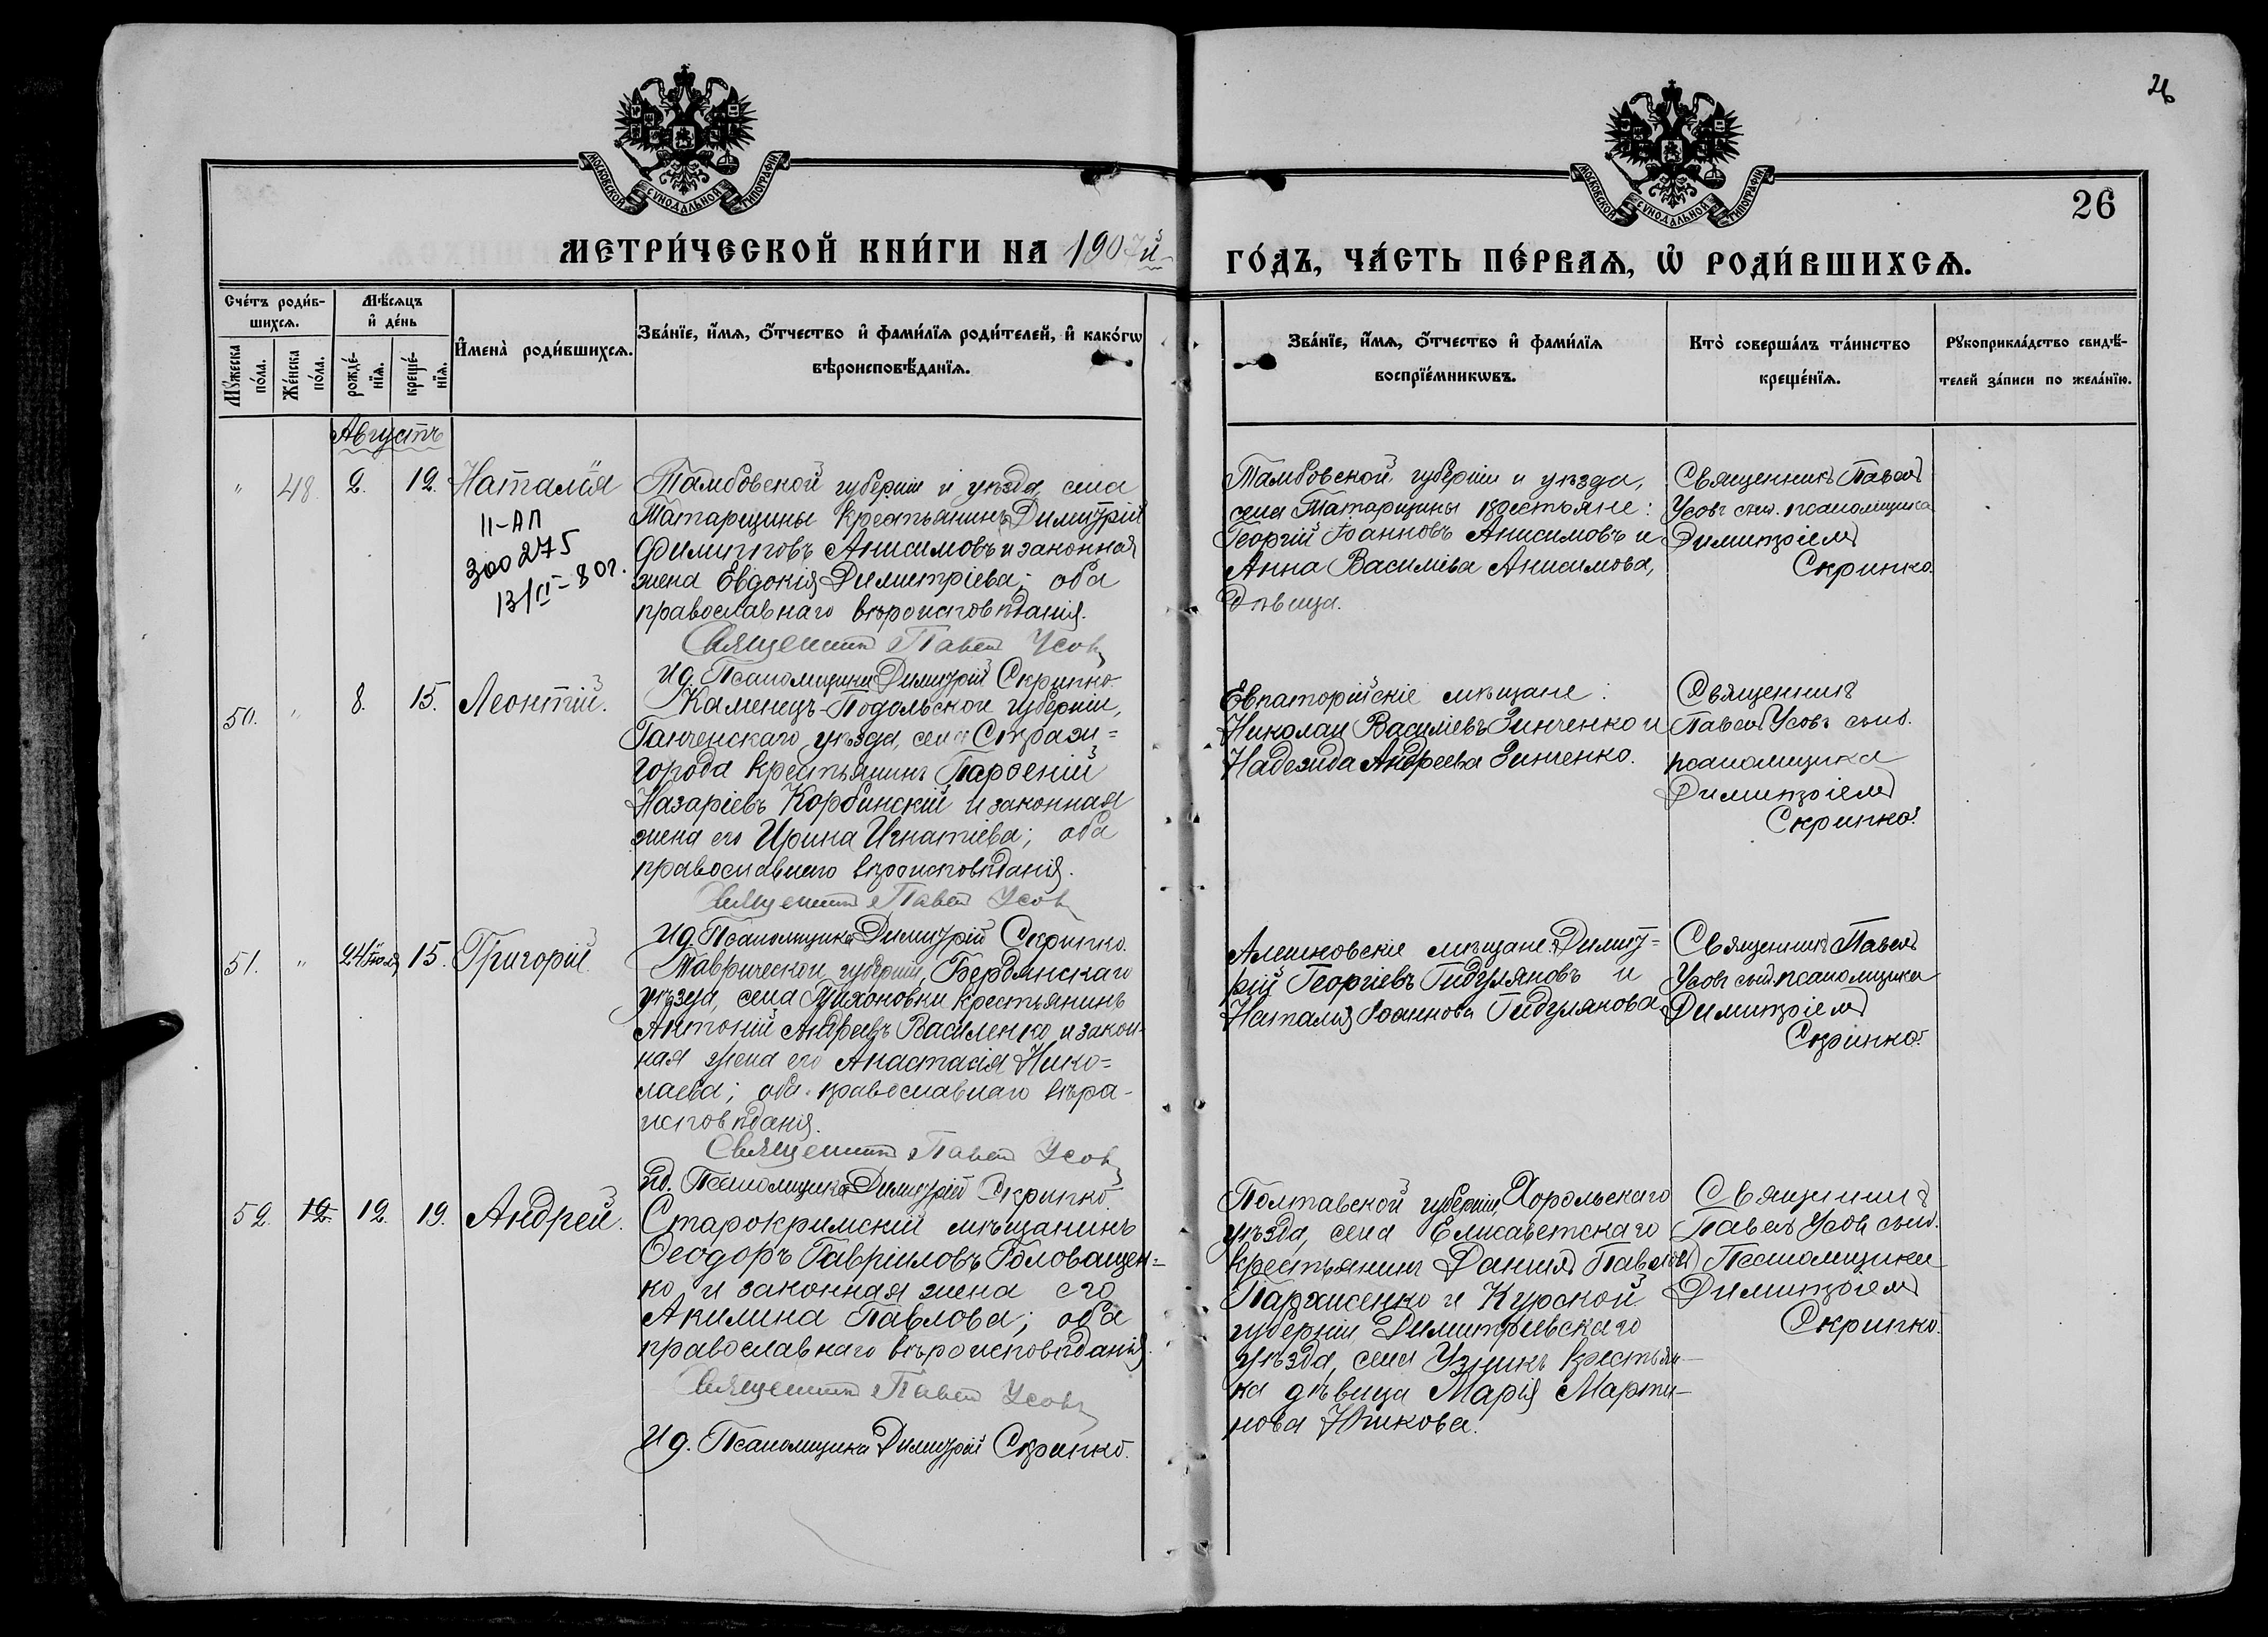 26
МОСКОВСКОЙ СѴНОДАЛЬНОЙ ТИПОГРАФІИ
МОСКОВСКОЙ СѴНОДАЛЬНОЙ ТИПОГРАФІИ
26
МЕТРИ́ЧЕСКОЙ КНИ́ГИ НА 1907й
ГО́ДЪ, ЧА́СТЬ ПЕ́РВАѦ, Ѡ҆ РОДИ́ВШИХСѦ.
Сче́тъ роди́в-
шихсѧ.
Мꙋ́жеска по́ла.
Же́нска по́ла.
Мѣ́сѧцъ
и҆ де́нь
рожде́-
нїѧ.
креще́-
нїѧ.
И҆мена̀ роди́вшихсѧ.
Зва́нїе, и҆́мѧ, ѻ҆́тчество и҆ фами́лїѧ роди́телей, и҆ како́гѡ
вѣроисповѣ́данїѧ.
Зва́нїе, и҆́мѧ, ѻ҆́тчество и҆ фами́лїѧ
воспрїе́мникѡвъ.
Кто̀ соверша́лъ та́инство
креще́нїѧ.
Рꙋкоприкла́дство свидѣ́-
телей за́писи по жела́нїю.
Августъ
" 48. 2. 12. Наталія
11-АП
300275
13/II-80г.
Тамбовской губерніи и уѣзда, села
Татарщины крестьянинъ Димитрій
Филипповъ Анисимовъ и законная
жена Евдокія Димитріева; оба
православнаго вѣроисповѣданія.
Священникъ Павелъ Усовъ
Ид. Псаломщика Димитрій Скрипко.
Тамбовской губерніи и уѣзда,
села Татарщины крестьяне:
Георгій Іоанновъ Анисимовъ и
Анна Василіева Анисимова,
дѣвица.
Священникъ Павелъ
Усовъ съ ид. псаломщика
Димитріемъ
Скрипко.
50. " 8. 15. Леонтій.
Каменецъ-Подольской губерніи,
уѣзда, села Стражи=
города крестьянинъ Парѳеній
Назаріевъ Корбинскій и законная
жена его Ирина Игнатіева; оба
православнаго вѣроисповѣданія.
Священникъ Павелъ Усовъ
Ид. Псаломщика Димитрій Скрипко.
Евпаторійскіе мѣщане:
Николай Василіевъ Зинченко и
Надежда Андреева Зинченко.
Священникъ
Павелъ Усовъ съ ид.
псаломщика
Димитріемъ
Скрипко.
51. " 24 іюля 15. Григорій.
Таврической губерніи, Бердянскаго
уѣзда, села крестьянинъ
Антоній Андреевъ Василенко и закон-
ная жена его Анастасія Нико=
лаева; оба православнаго вѣро-
исповѣданія.
Священникъ Павелъ Усовъ
Ид. Псаломщика Димитрій Скрипко.
Алешковскіе мѣщане: Димит=
рій Георгіевъ Гидуляновъ и
Наталія Іоаннова Гидулянова.
Священникъ Павелъ
Усовъ съ ид. псаломщика
Димитріемъ
Скрипко.
52. 12. 12. 19. Андрей.
Старокримскій мѣщанинъ
Ѳеодоръ Гавріиловъ Головащен=
ко и законная жена его
Акилина Павлова; оба
православнаго вѣроисповѣданія.
Священникъ Павелъ Усовъ
Ид. Псаломщика Димитрій Скрипко.
Полтавской губерніи, Хорольскаго
уѣзда, села Елисаветскаго
крестьянинъ Даніилъ Павловъ
Пархисенко и Курской
губерніи Димитріевскаго
уѣзда, села крестьян-
ка дѣвица Марія Марти-
нова
Священникъ
Павелъ Усовъ съ ид.
Псаломщика
Димитріемъ
Скрипко.